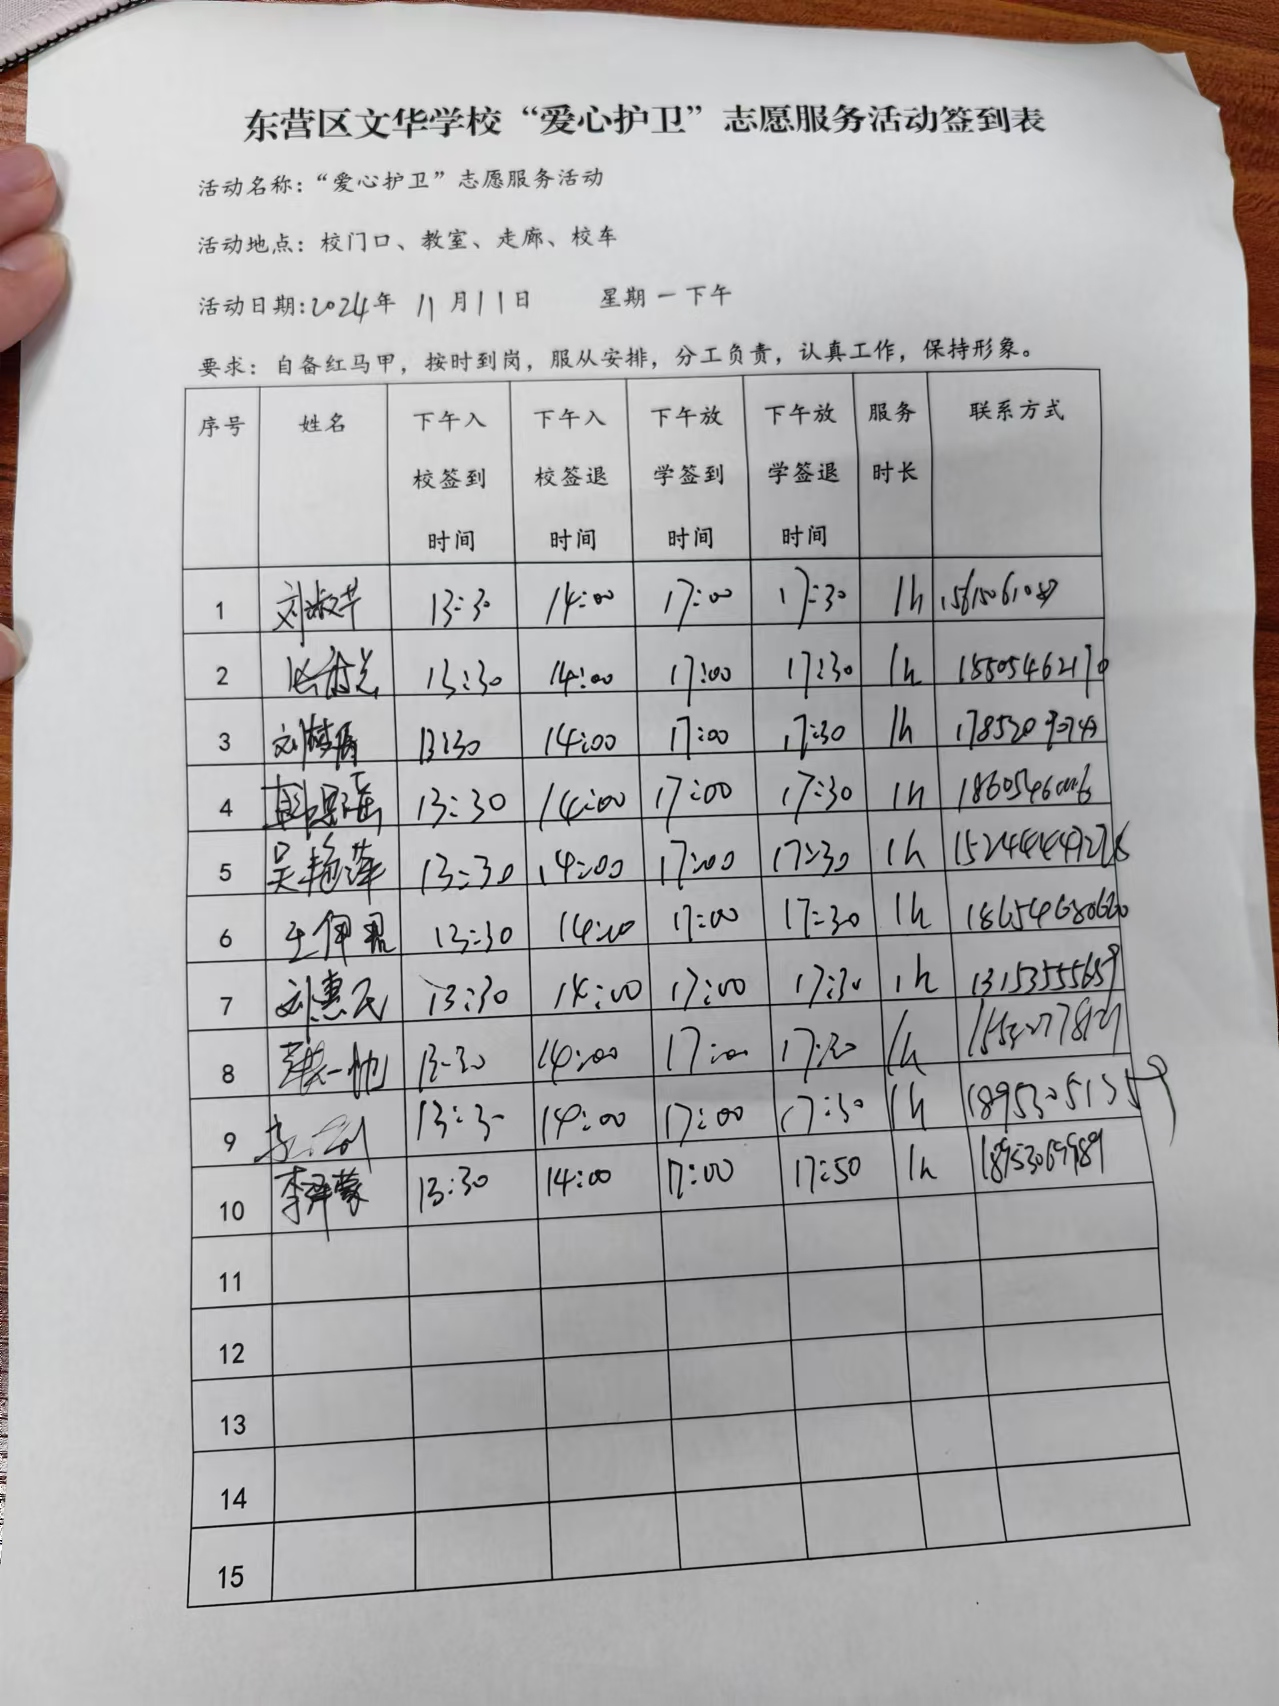 东营区文华学校“爱心护卫”志愿服务活动签到表
活动名称：“爱心护卫”志愿服务活动
活动地点：校门口、教室、走廊、校车
活动日期：2024年 11月11日 星期一下午
要求：自备红马甲，按时到岗，服从安排，分工负责，认真工作，保持形象。
序号 姓名 下午入校签到时间 下午入校签退时间 下午放学签到时间 下午放学签退时间 服务时长 联系方式
1 刘淑芹 13:30 14:00 17:00 17:30 1h
2 13:30 14:00 17:00 17:30 1h 18505462170
3 13:30 14:00 17:00 17:30 1h
4 13:30 14:00 17:00 17:30 1h
5 吴艳萍 13:30 14:00 17:00 17:30 1h
6 13:30 14:00 17:00 17:30 1h
7 刘惠民 13:30 14:00 17:00 17:30 1h 13153555659
8 13:30 14:00 17:00 17:30 1h
9 13:30 14:00 17:00 17:30 1h 18953051359
10 李泽蒙 13:30 14:00 17:00 17:50 1h
11
12
13
14
15